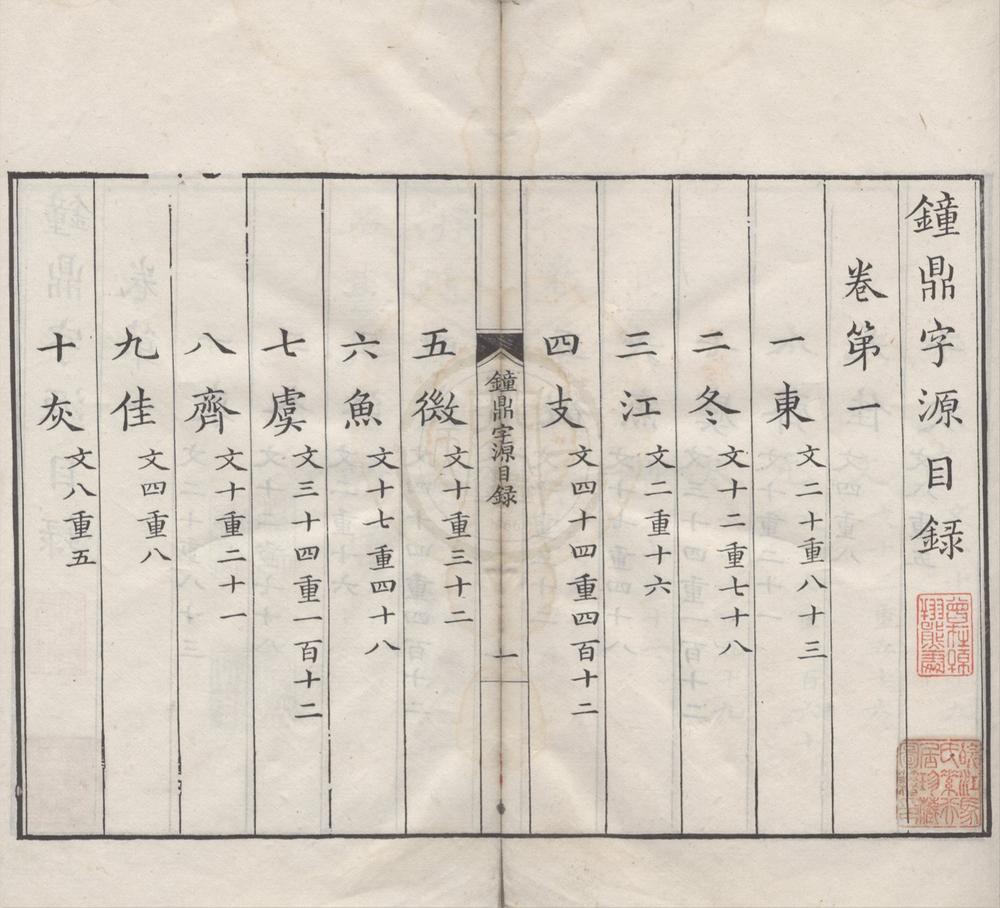 鐘鼎字源目録
卷第一
一東 文二十重八十三
二冬 文十二重七十八
三江 文二重十六
四支 文四十四重四百十二
鐘鼎字源目録 一
五微 文十重三十二
六魚 文十七重四十八
七虞 文三十四重一百十二
八齊 文十重二十一
九佳 文四重八
十灰 文八重五